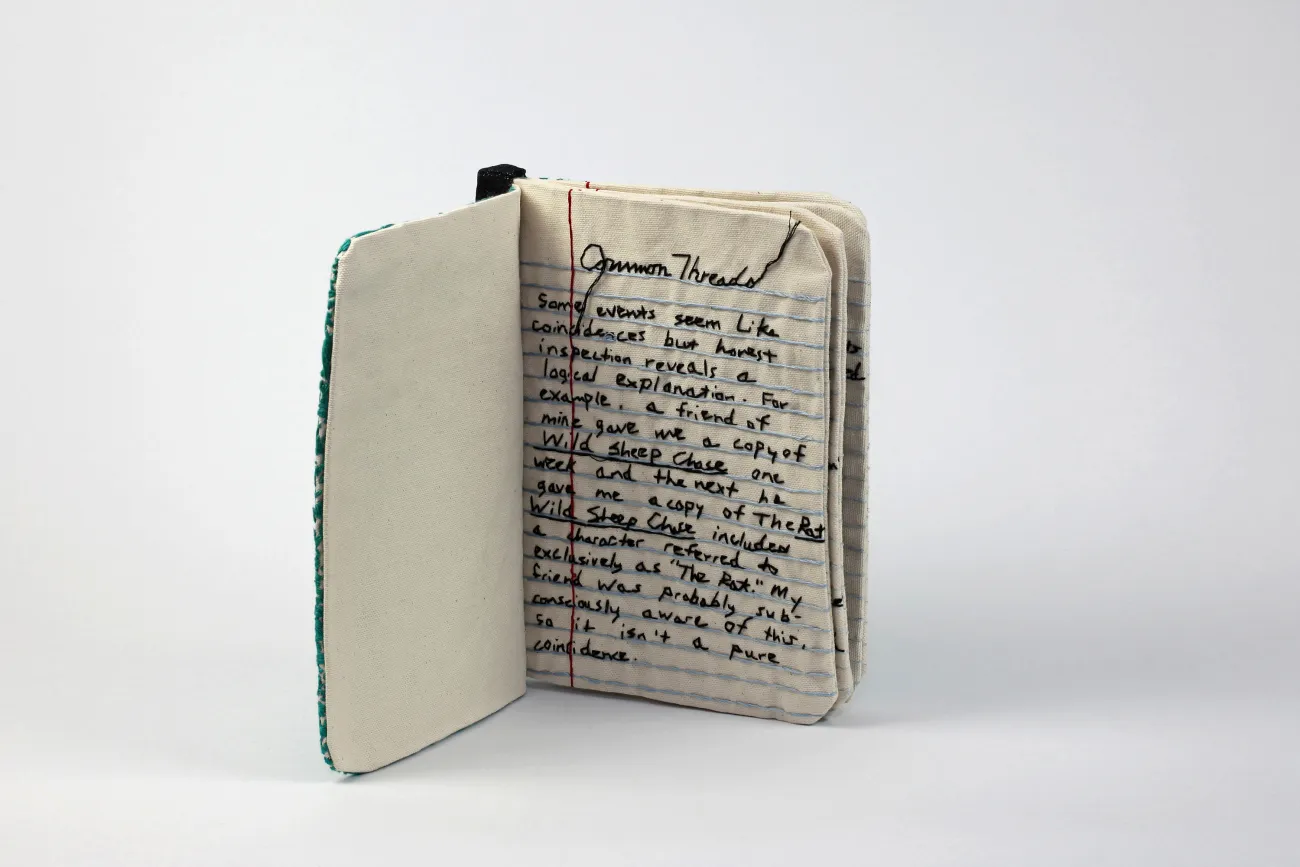 Common Threads
Some events seem like
coincidences but honest
inspection reveals a
logical explanation. For
example, a friend of
mine gave me a copy of
Wild Sheep Chase one
week and the next he
gave me a copy of The Rat
Wild Sheep Chase includes
a character referred to
exclusively as "The Rat." My
friend was probably sub-
consciously aware of this,
so it isn't a pure
coincidence.